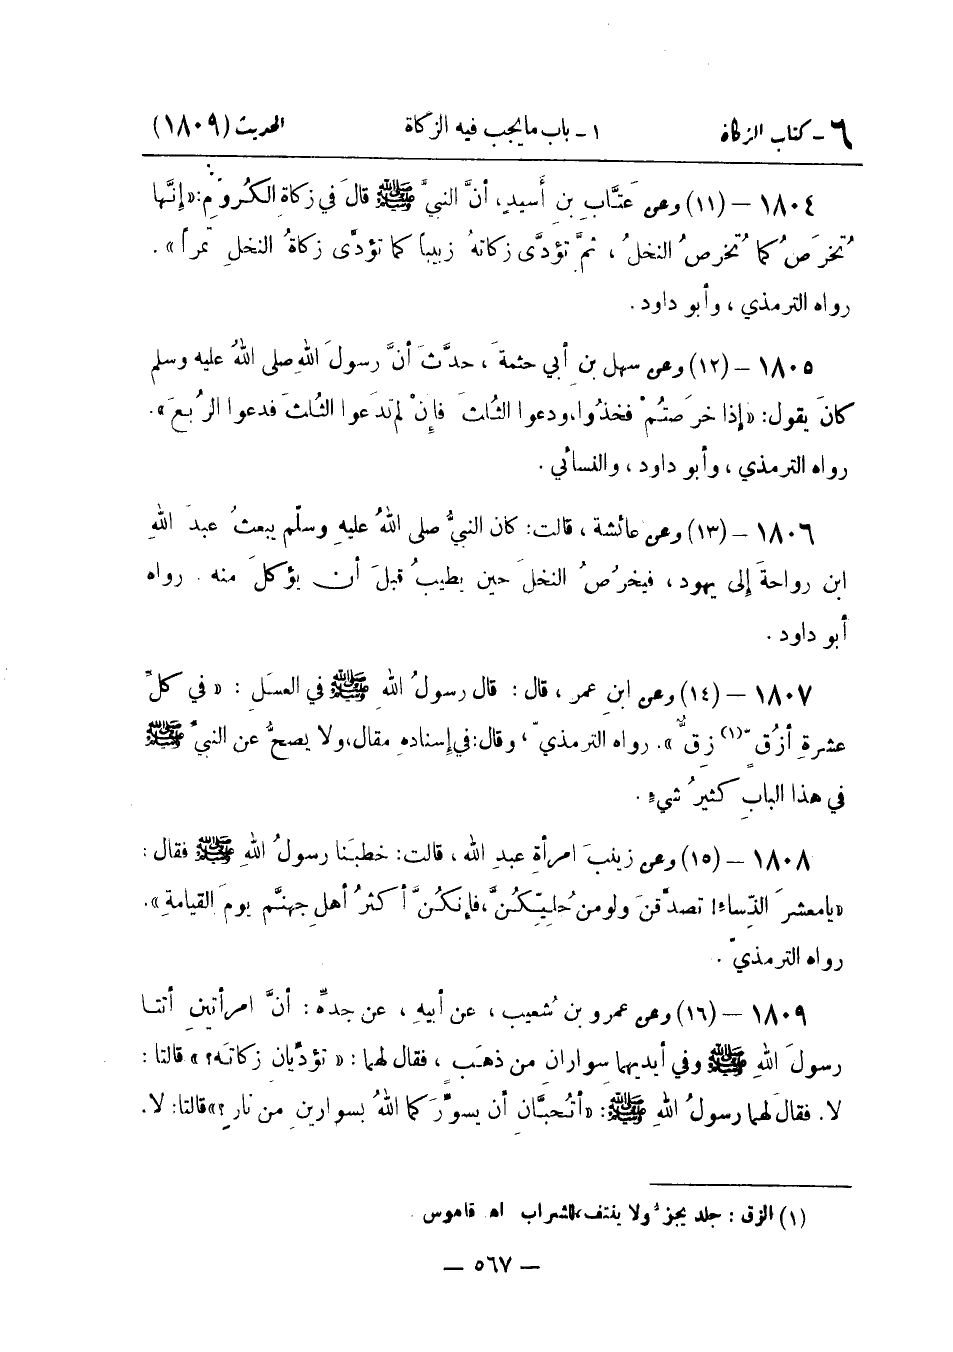 ٦ - كتاب الزكاة ١ - باب ما يجب فيه الزكاة الحديث (١٨٠٩)
١٨٠٤ - (١١) وعن عَتَّابِ بنِ أَسيدٍ، أنَّ النبيَّ ﷺ قالَ في زكاةِ الكُرومِ: «إِنَّها
تُخرَصُ كما تُخرصُ النخلُ، ثمَّ تؤدَّى زكاتهُ زبيباً كما تؤدَّى زكاةُ النخلِ تمراً».
رواه الترمذي، وأبو داود.
١٨٠٥ - (١٢) وعن سهل بنِ أبي حثمةَ، حدَّثَ أنَّ رسولَ اللهِ صلى اللهُ عليه وسلم
كانَ يقول: «إذا خرَصتُمْ فخذُوا، ودعوا الثلثَ فإنْ لم تدَعوا الثلثَ فدعوا الرُبعَ».
رواه الترمذي، وأبو داود، والنسائي.
١٨٠٦ - (١٣) وعن عائشة، قالت: كان النبيُّ صلى اللهُ عليهِ وسلّم يبعثُ عبدَ اللهِ
ابن رواحةَ إلى يهود، فيخرُصُ النخلَ حين يطيبُ قبلَ أن يؤكلَ منه. رواه
أبو داود.
١٨٠٧ - (١٤) وعن ابنِ عمر، قال: قال رسولُ اللهِ ﷺ في العسَلِ: «في كلِّ
عشرةِ أزُقٍّ(١) زِقٌّ». رواه الترمذيّ، وقال: في إسنادهِ مقال، ولا يصحُّ عن النبيِّ ﷺ
في هذا البابِ كثيرُ شيءٍ.
١٨٠٨ - (١٥) وعن زينبَ امرأةِ عبدِ الله، قالت: خطبَنا رسولُ اللهِ ﷺ فقال:
«يا معشرَ النِّساء! تصدَّقنَ ولو من حُليِّكُنَّ، فإنكُنَّ أكثرُ أهلِ جهنَّم يومَ القيامةِ».
رواه الترمذيّ.
١٨٠٩ - (١٦) وعن عمرو بن شُعيب، عن أبيهِ، عن جدهِ: أنَّ امرأتينِ أتتا
رسولَ اللهِ ﷺ وفي أيديهما سوارانِ من ذهَبٍ، فقال لهما: «تؤدِّيان زكاتَه؟» قالتا:
لا. فقالَ لهما رسولُ اللهِ ﷺ: «أتُحبَّانِ أن يسوِّرَكما اللهُ بسوارينِ من نارٍ؟» قالتا: لا.
(١) الزق: جلد يجز ولا ينتف، للشراب اه قاموس.
— ٥٦٧ —